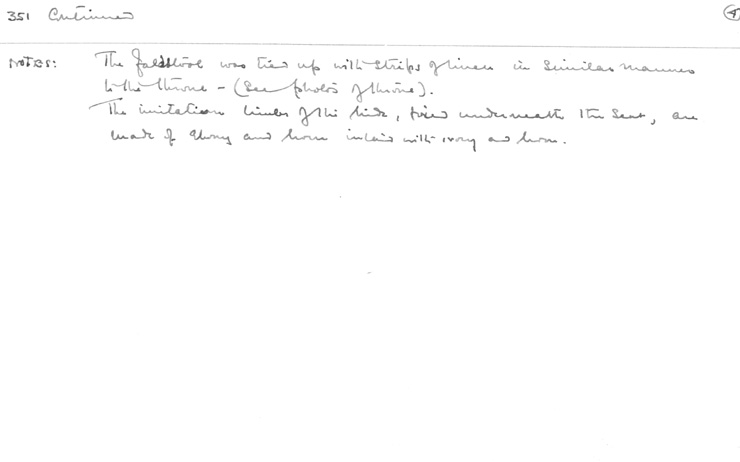 351 Continued 4
NOTES: The faldstool was tied up with strips of linen in similar manner
to the throne - (See photo's of throne).
The imitation limbs of the hide, fixed underneath the Seat, are
made of ebony and horn inlaid with ivory and horn.